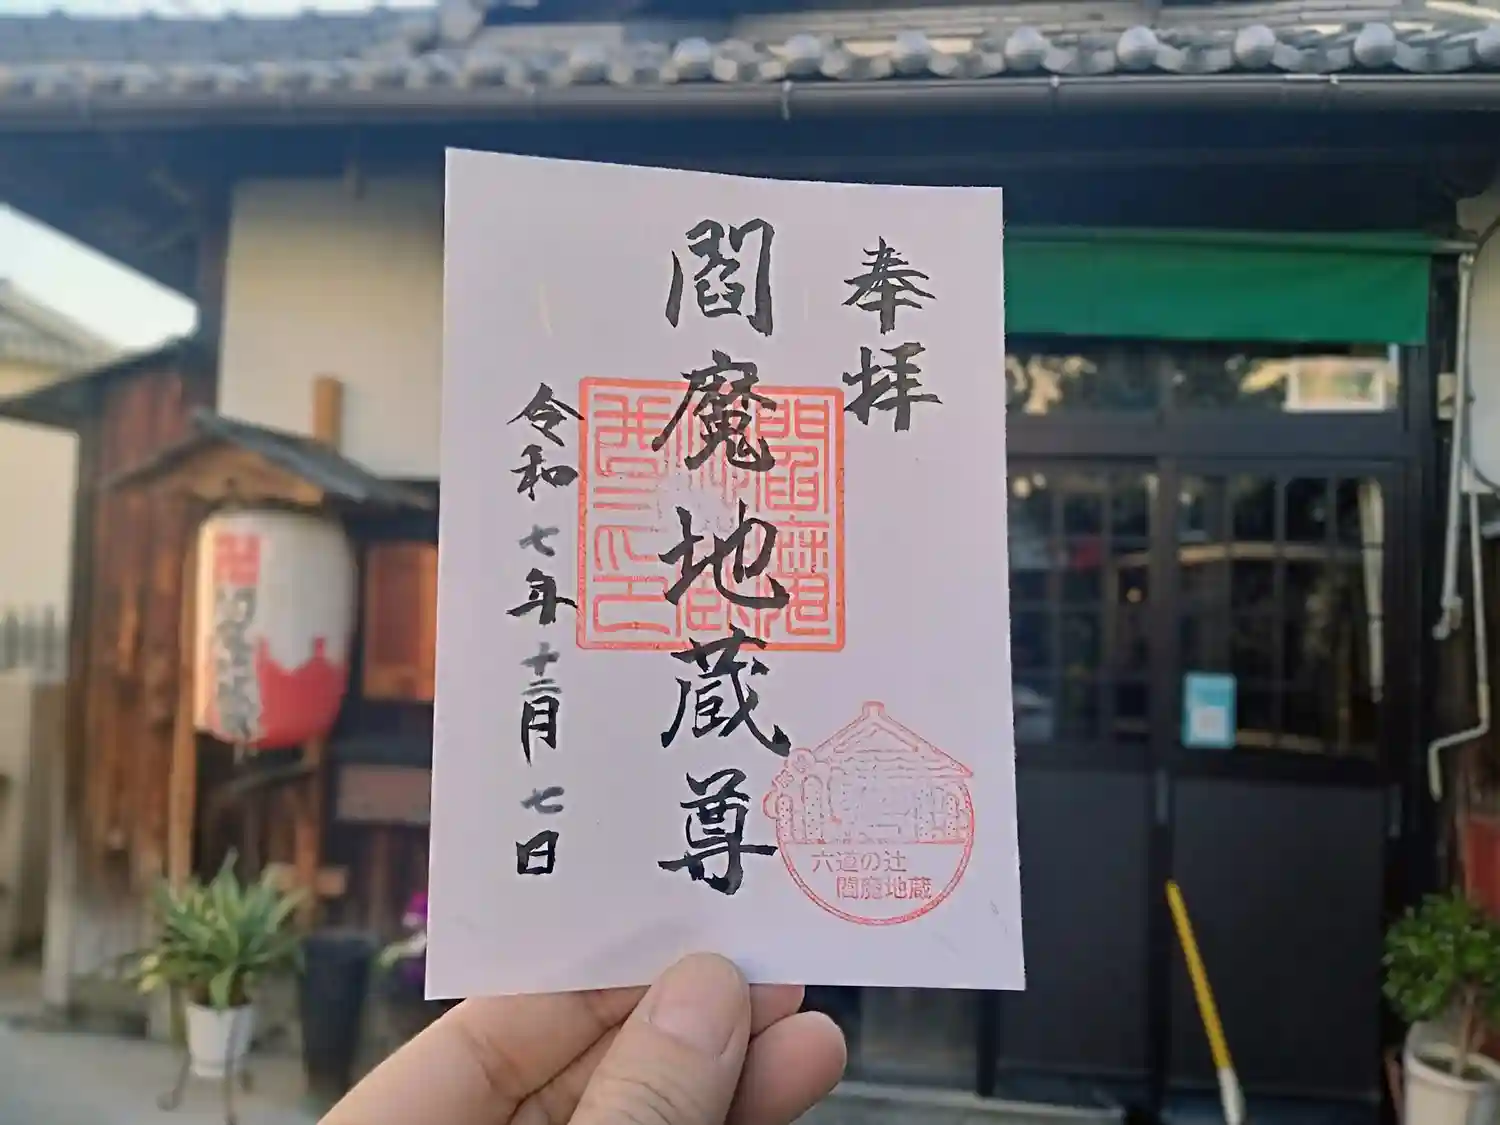 奉拝
閻魔地蔵尊
令和七年十二月七日
六道の辻
閻魔地蔵